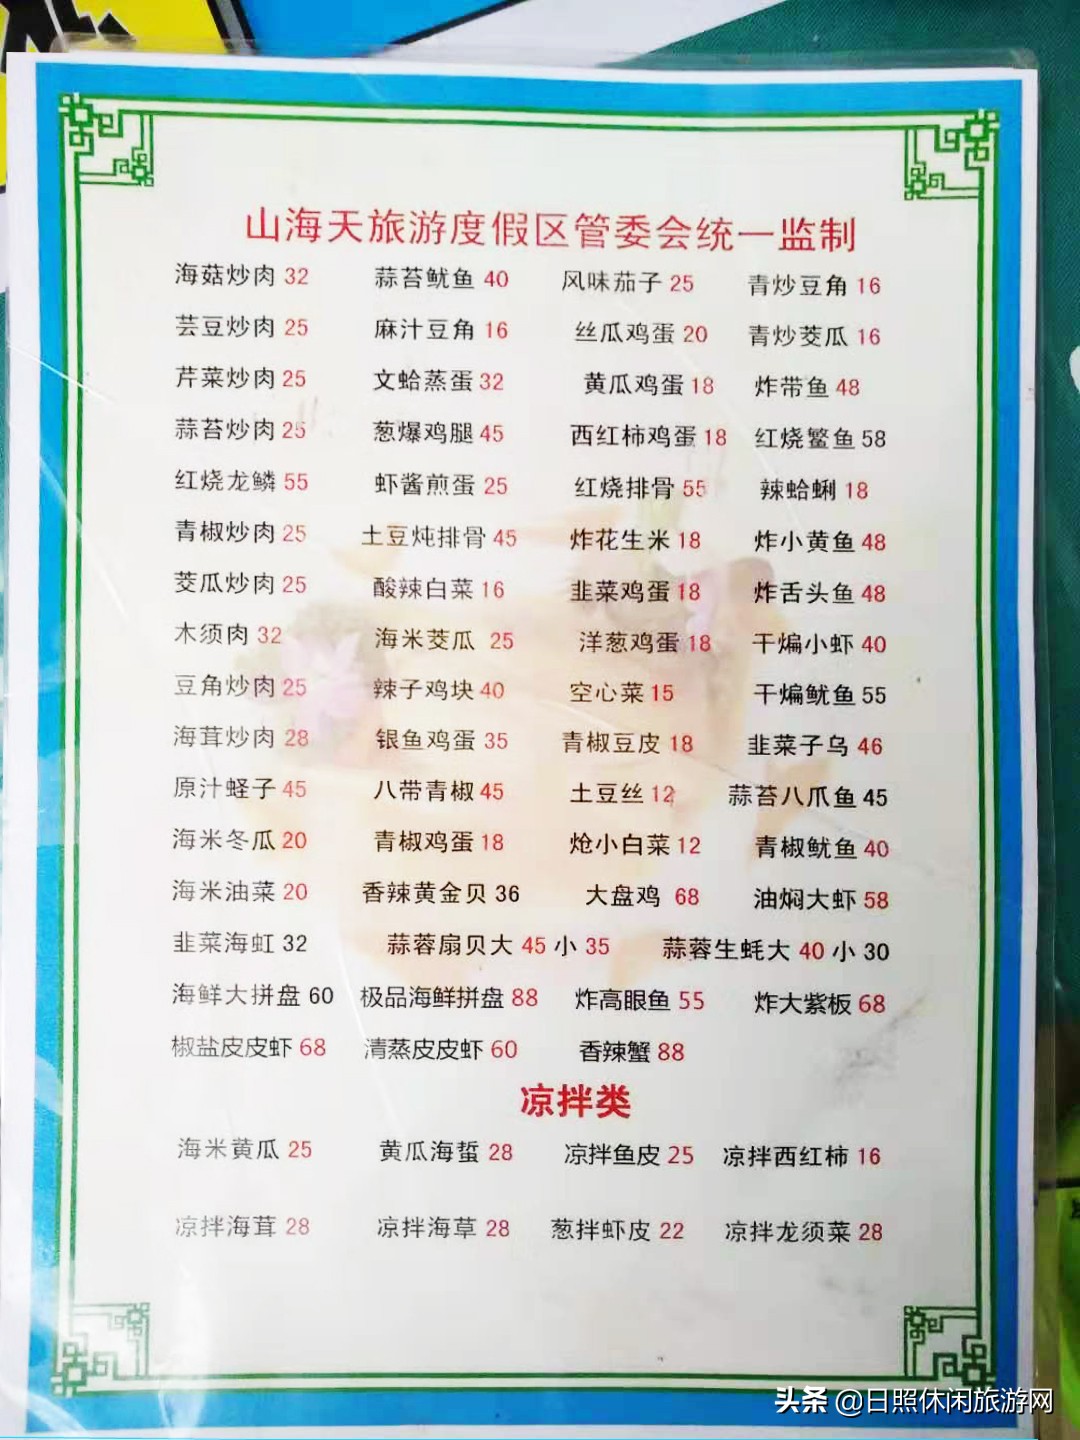 山海天旅游度假区管委会统一监制
海菇炒肉 32 蒜苔鱿鱼 40 风味茄子 25 青炒豆角 16
芸豆炒肉 25 麻汁豆角 16 丝瓜鸡蛋 20 青炒茭瓜 16
芹菜炒肉 25 文蛤蒸蛋 32 黄瓜鸡蛋 18 炸带鱼 48
蒜苔炒肉 25 葱爆鸡腿 45 西红柿鸡蛋 18 红烧鳘鱼 58
红烧龙鳞 55 虾酱煎蛋 25 红烧排骨 55 辣蛤蜊 18
青椒炒肉 25 土豆炖排骨 45 炸花生米 18 炸小黄鱼 48
茭瓜炒肉 25 酸辣白菜 16 韭菜鸡蛋 18 炸舌头鱼 48
木须肉 32 海米茭瓜 25 洋葱鸡蛋 18 干煸小虾 40
豆角炒肉 25 辣子鸡块 40 空心菜 15 干煸鱿鱼 55
海茸炒肉 28 银鱼鸡蛋 35 青椒豆皮 18 韭菜子乌 46
原汁蛏子 45 八带青椒 45 土豆丝 12 蒜苔八爪鱼 45
海米冬瓜 20 青椒鸡蛋 18 炝小白菜 12 青椒鱿鱼 40
海米油菜 20 香辣黄金贝 36 大盘鸡 68 油焖大虾 58
韭菜海虹 32 蒜蓉扇贝大 45 小 35 蒜蓉生蚝大 40 小 30
海鲜大拼盘 60 极品海鲜拼盘 88 炸高眼鱼 55 炸大紫板 68
椒盐皮皮虾 68 清蒸皮皮虾 60 香辣蟹 88
凉拌类
海米黄瓜 25 黄瓜海蜇 28 凉拌鱼皮 25 凉拌西红柿 16
凉拌海茸 28 凉拌海草 28 葱拌虾皮 22 凉拌龙须菜 28
头条 @日照休闲旅游网